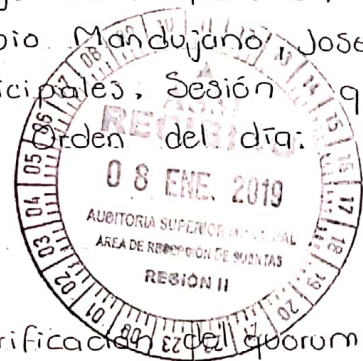 bio Mandujano, Jose
icipales, Sesión q
RECIBIDO
Orden del día:
08 ENE. 2019
AUDITORIA SUPERIOR
AREA DE RECEPCIÓN DE CUENTAS
REGIÓN II
rificación del quorum